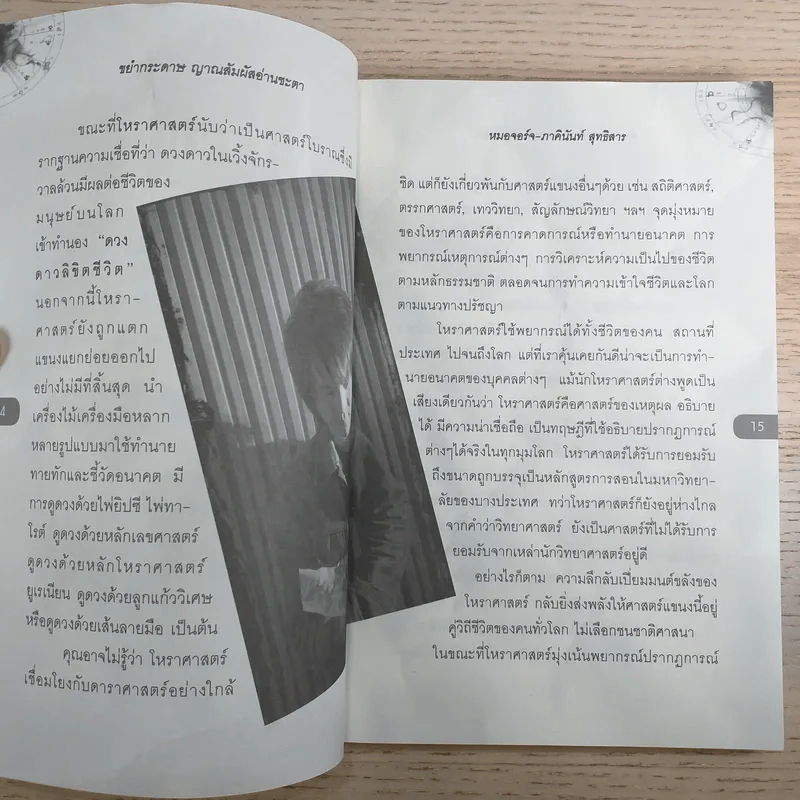 ขยำกระดาษ ญาณสัมผัสอ่านชะตา
ขณะที่โหราศาสตร์นับว่าเป็นศาสตร์โบราณซึ่งมี
รากฐานความเชื่อที่ว่า ดวงดาวในเวิ้งจักร-
วาลล้วนมีผลต่อชีวิตของ
มนุษย์บนโลก
เข้าทำนอง “ดวง
ดาวลิขิตชีวิต”
นอกจากนี้โหรา-
ศาสตร์ยังถูกแตก
แขนงแยกย่อยออกไป
อย่างไม่มีที่สิ้นสุด นำ
เครื่องไม้เครื่องมือหลาก
หลายรูปแบบมาใช้ทำนาย
ทายทักและชี้วัดอนาคต มี
การดูดวงด้วยไพ่ยิปซี ไพ่ทา-
โรต์ ดูดวงด้วยหลักเลขศาสตร์
ดูดวงด้วยหลักโหราศาสตร์
ยูเรเนียน ดูดวงด้วยลูกแก้ววิเศษ
หรือดูดวงด้วยเส้นลายมือ เป็นต้น
คุณอาจไม่รู้ว่า โหราศาสตร์
เชื่อมโยงกับดาราศาสตร์อย่างใกล้
4
หมอจอร์จ-ภาคินันท์ สุทธิสาร
ชิด แต่ก็ยังเกี่ยวพันกับศาสตร์แขนงอื่นๆด้วย เช่น สถิติศาสตร์,
ตรรกศาสตร์, เทววิทยา, สัญลักษณ์วิทยา ฯลฯ จุดมุ่งหมาย
ของโหราศาสตร์คือการคาดการณ์หรือทำนายอนาคต การ
พยากรณ์เหตุการณ์ต่างๆ การวิเคราะห์ความเป็นไปของชีวิต
ตามหลักธรรมชาติ ตลอดจนการทำความเข้าใจชีวิตและโลก
ตามแนวทางปรัชญา
โหราศาสตร์ใช้พยากรณ์ได้ทั้งชีวิตของคน สถานที่
ประเทศ ไปจนถึงโลก แต่ที่เราคุ้นเคยกันดีน่าจะเป็นการทำ-
นายอนาคตของบุคคลต่างๆ แม้นักโหราศาสตร์ต่างพูดเป็น
เสียงเดียวกันว่า โหราศาสตร์คือศาสตร์ของเหตุผล อธิบาย
ได้ มีความน่าเชื่อถือ เป็นทฤษฎีที่ใช้อธิบายปรากฏการณ์
ต่างๆได้จริงในทุกมุมโลก โหราศาสตร์ได้รับการยอมรับ
ถึงขนาดถูกบรรจุเป็นหลักสูตรการสอนในมหาวิทยา-
ลัยของบางประเทศ ทว่าโหราศาสตร์ก็ยังอยู่ห่างไกล
จากคำว่าวิทยาศาสตร์ ยังเป็นศาสตร์ที่ไม่ได้รับการ
ยอมรับจากเหล่านักวิทยาศาสตร์อยู่ดี
อย่างไรก็ตาม ความลึกลับเปี่ยมมนต์ขลังของ
โหราศาสตร์ กลับยิ่งส่งพลังให้ศาสตร์แขนงนี้อยู่
คู่วิถีชีวิตของคนทั่วโลก ไม่เลือกชนชาติศาสนา
ในขณะที่โหราศาสตร์มุ่งเน้นพยากรณ์ปรากฏการณ์
15